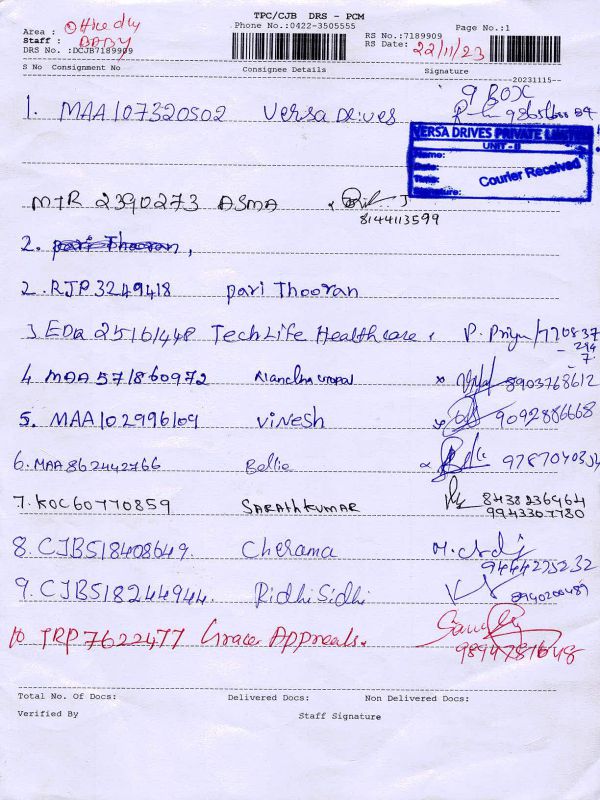 TPC/CJB DRS - PCM
Phone No.:0422-3505555 Page No.:1
Area :
Staff : BABY
DRS No. :DCJB7189909
RS No.:7189909
RS Date: 22/11/23
S No Consignment No Consignee Details Signature
20231115
9 BOX
1. MAA107320502 Versa Drives
VERSA DRIVES PRIVATE LIMITED
UNIT - II
Name:
Date:
Time:
Signature:
Courier Received
MTR 2390273 ASMA
8144113599
2. pari Thooran,
2. RJP3249418 pari Thooran
3 EDA 25161448 TechLife Healthcare. P. Priya/770837
294
7
4 MAA 571860972 8903768612
5. MAA102996109 Vinesh 9092886668
6. MAA862442766 Bellie
7. KOC60770859 SARATHKUMAR 8438236964
9943307780
8. CJB518408649. Cherama
9444225232
9. CJB518244944. Ridhi Sidhi 8940200489
10 TRP7622477 Grace Appreals.
Total No. Of Docs: Delivered Docs: Non Delivered Docs:
Verified By Staff Signature